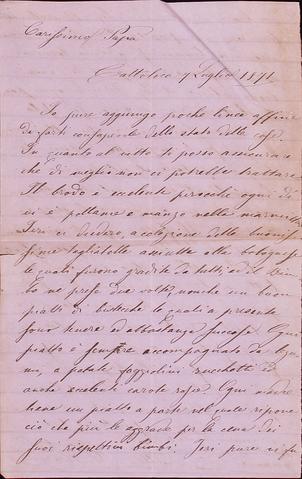 Carissimo Papà
Cattolica 7 Luglio 1871
Io pure aggiungo poche linee affine
di farti consapevole dello stato delle cose.
In quanto al vitto ti posso assicurare
che di meglio non ci potrebbe trattare
Il brodo è eccelente perocchè ogni dì
vi è pollame e manzo nella marmitta
Ieri ci diedero, a colezione delle buonis
sime tagliatelle asciutte alla bolognese
le quali furono gradite da tutti, ed il
to ne prese due volte, nonchè un buon
piatto di bistecche le quali a presente
sono tenere ed abbastanza succose. Ogni
piatto è sempre accompagnato da
mi, o patate faggiolini zucchetti ed
anche excelenti carote rosse. Ogni madre
tiene un piatto a parte nel quale ripone
ciò che più le aggrada per la cena dei
suoi rispettivi bimbi. Ieri pure vi fu